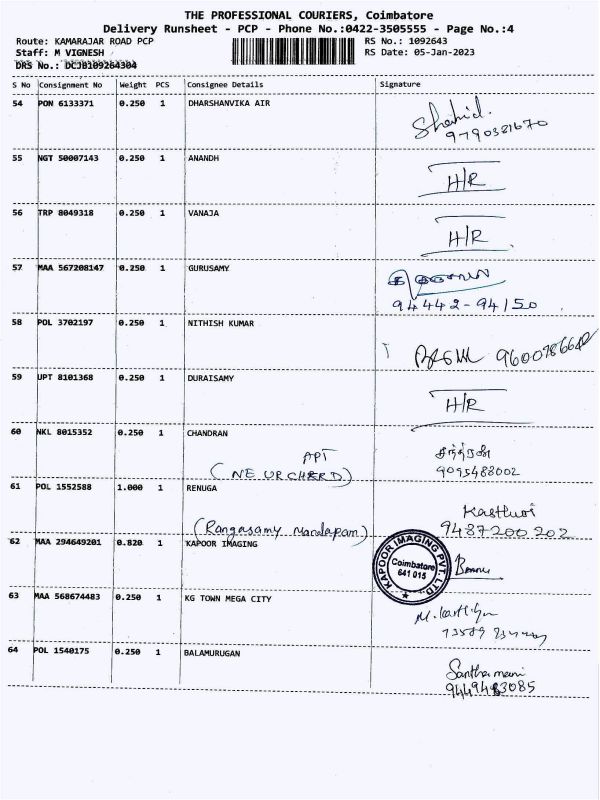 THE PROFESSIONAL COURIERS, Coimbatore
Delivery Runsheet - PCP - Phone No.:0422-3505555 - Page No.:4
Route: KAMARAJAR ROAD PCP RS No.: 1092643
Staff: M VIGNESH RS Date: 05-Jan-2023
DRS No.: DCJB109264304
S No Consignment No Weight PCS Consignee Details Signature
54 PON 6133371 0.250 1 DHARSHANVIKA AIR Shahid.
9790321670
55 NGT 50007143 0.250 1 ANANDH
H/R
56 TRP 8049318 0.250 1 VANAJA
H/R
57 MAA 567208147 0.250 1 GURUSAMY
94442-94150
58 POL 3702197 0.250 1 NITHISH KUMAR
59 UPT 8101368 0.250 1 DURAISAMY
H/R
60 NKL 8015352 0.250 1 CHANDRAN
APT சந்திரன்
(NE URCHERD) 9095483002
61 POL 1552588 1.000 1 RENUGA
Kasthuri
(Rangasamy mandapam) 9487200202
62 MAA 294649201 0.820 1 KAPOOR IMAGING
KAPOOR IMAGING PVT. LTD.
Coimbatore
641 015
63 MAA 568674483 0.250 1 KG TOWN MEGA CITY
64 POL 1540175 0.250 1 BALAMURUGAN
Santhamani
9449483085